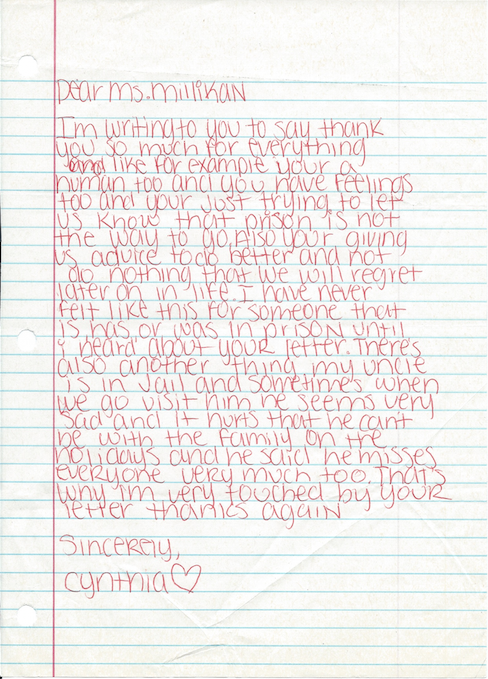 Dear Ms. Millikan
I'm writing to you to say thank
you so much for everything
and like for example your a
human too and you have feelings
too and your just trying to let
us know that prison is not
the way to go. Also your giving
us advice to do better and not
do nothing that we will regret
later on in life. I have never
felt like this for someone that
is has or was in prison until
i heard about your letter. There's
also another thing my uncle
is in jail and sometime's when
we go visit him he seems very
sad and it hurts that he can't
be with the family on the
holidays and he said he misses
everyone very much too. That's
why im very touched by your
letter thanks again
Sincerely,
Cynthia♡